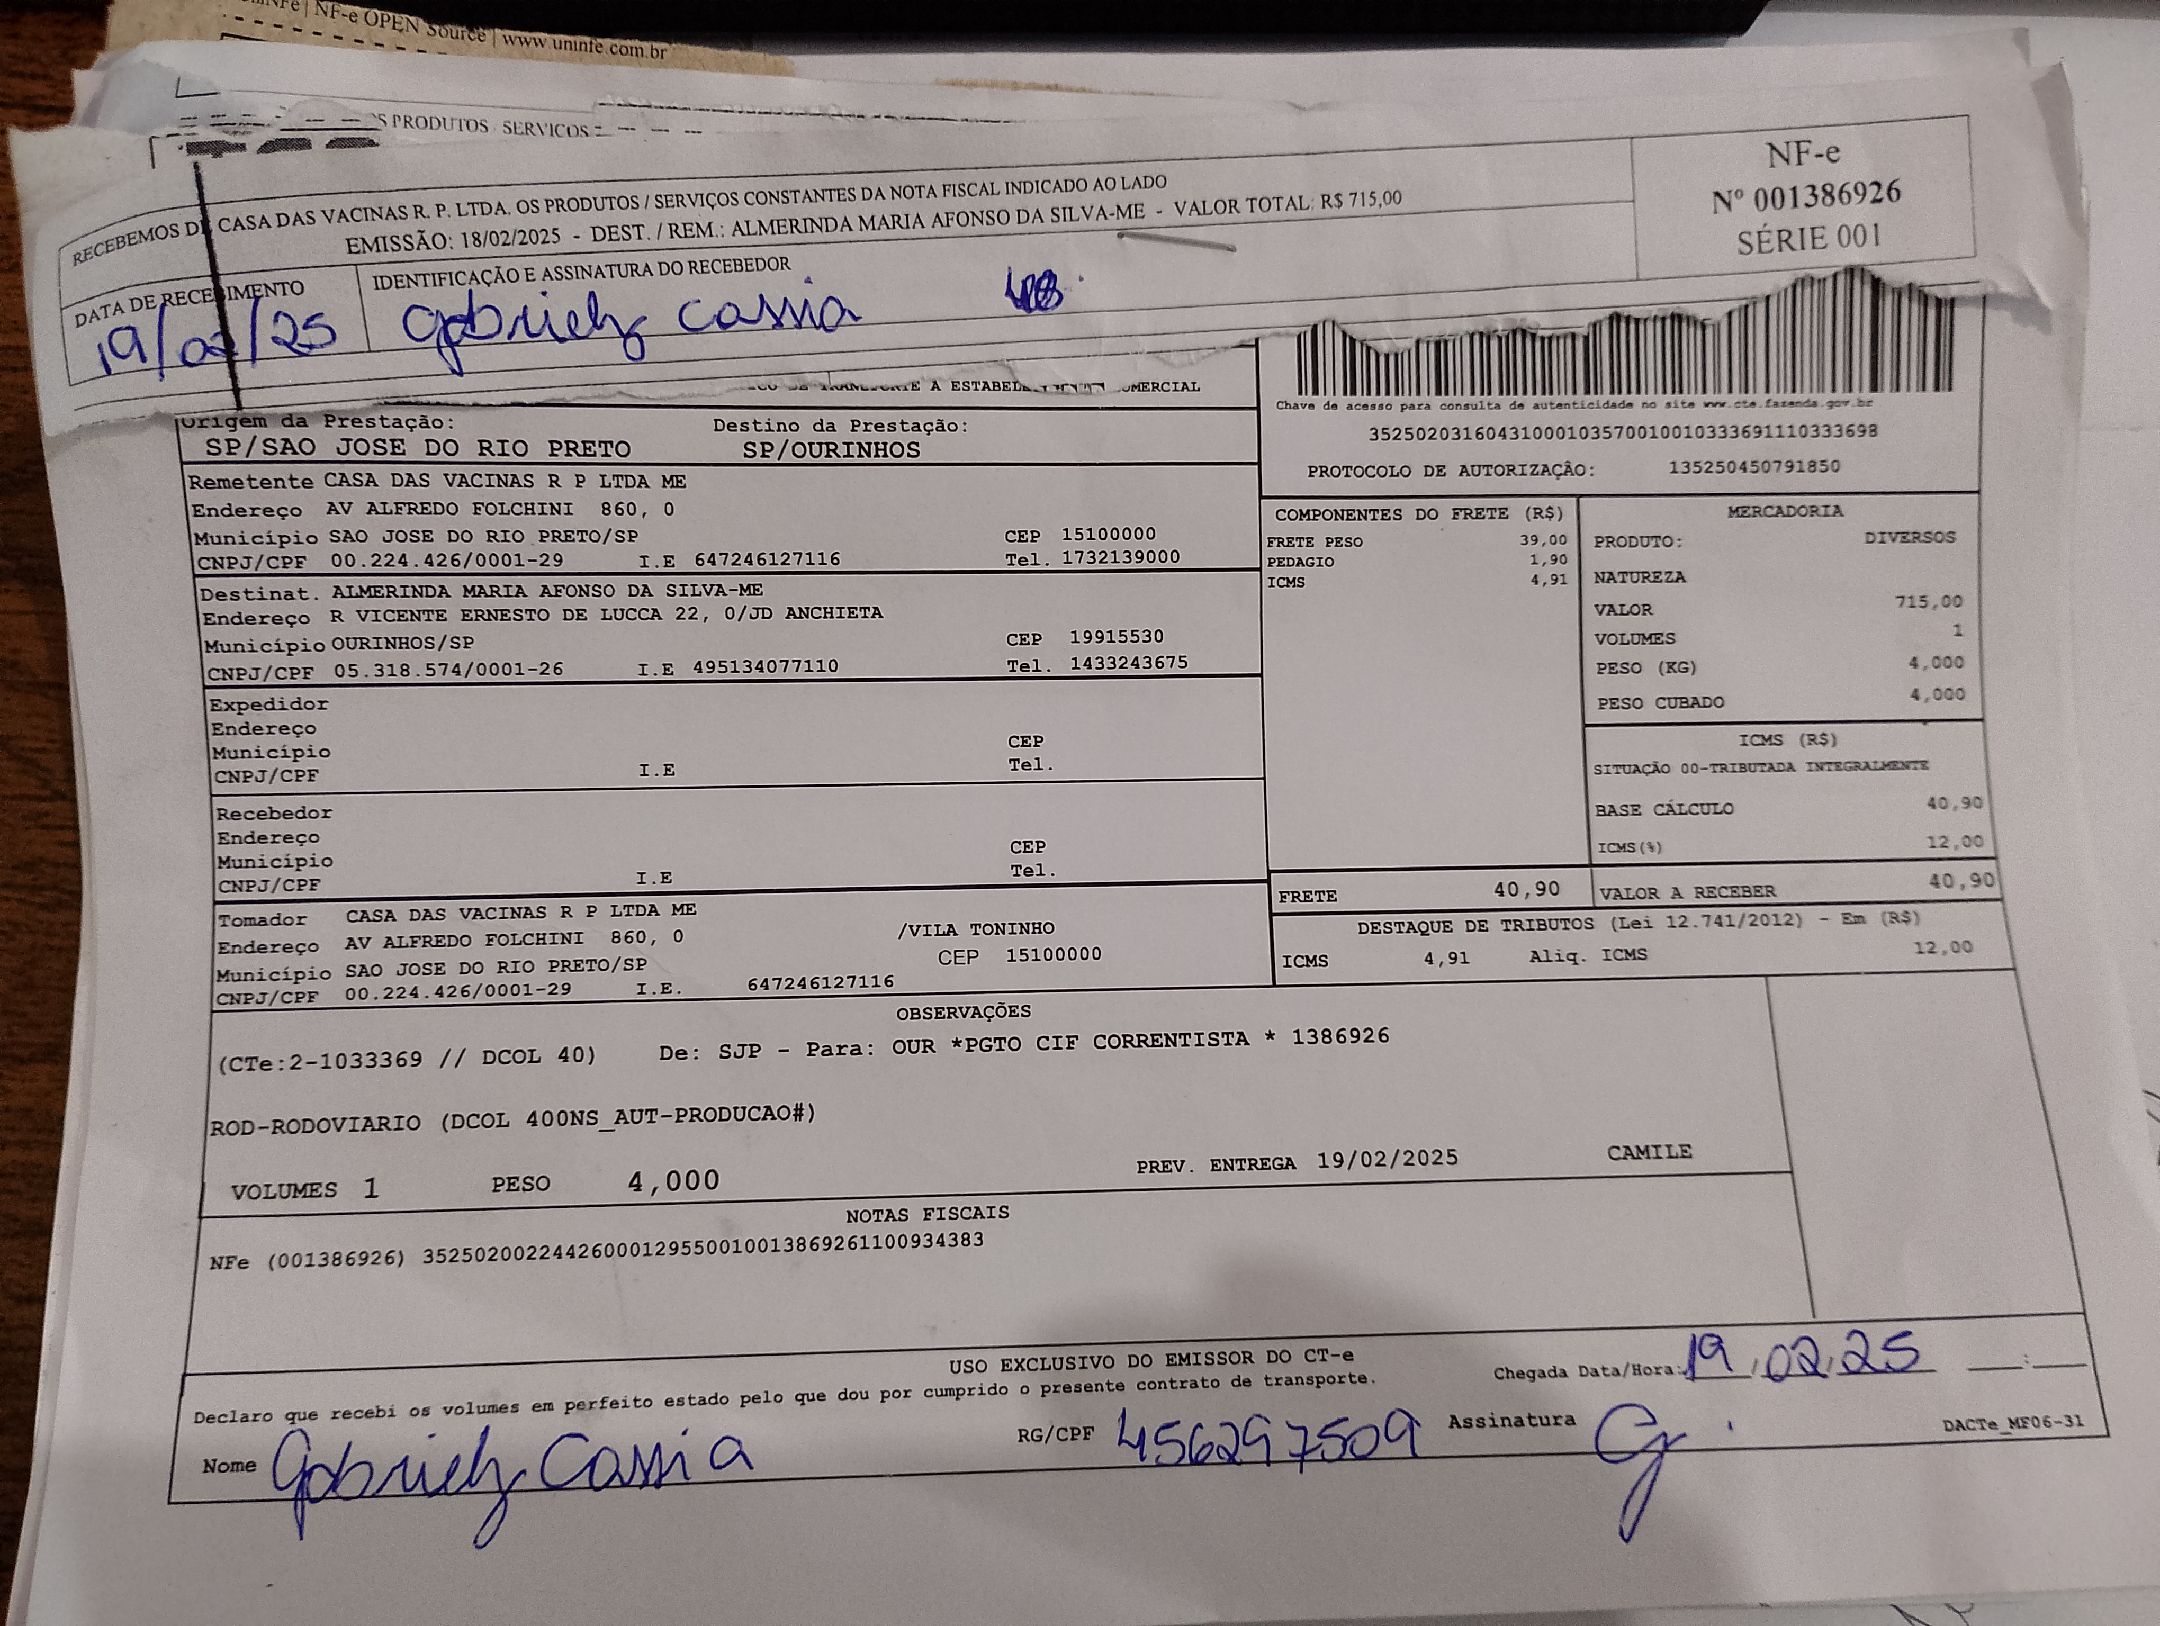 NFe | NF-e OPEN Source | www.uninfe.com.br
S PRODUTOS SERVICOS
RECEBEMOS DE CASA DAS VACINAS R. P. LTDA. OS PRODUTOS / SERVIÇOS CONSTANTES DA NOTA FISCAL INDICADO AO LADO
EMISSÃO: 18/02/2025 - DEST. / REM.: ALMERINDA MARIA AFONSO DA SILVA-ME - VALOR TOTAL: R$ 715,00
NF-e
Nº 001386926
SÉRIE 001
DATA DE RECEBIMENTO
19/02/25
IDENTIFICAÇÃO E ASSINATURA DO RECEBEDOR
Gabriely Cassia
A ESTABELE OMERCIAL
Chave de acesso para consulta de autenticidade no site www.cte.fazenda.gov.br
35250203160431000103570010010333691110333698
PROTOCOLO DE AUTORIZAÇÃO: 135250450791850
Origem da Prestação: Destino da Prestação:
SP/SAO JOSE DO RIO PRETO SP/OURINHOS
Remetente CASA DAS VACINAS R P LTDA ME
Endereço AV ALFREDO FOLCHINI 860, 0
Município SAO JOSE DO RIO PRETO/SP CEP 15100000
CNPJ/CPF 00.224.426/0001-29 I.E 647246127116 Tel. 1732139000
Destinat. ALMERINDA MARIA AFONSO DA SILVA-ME
Endereço R VICENTE ERNESTO DE LUCCA 22, 0/JD ANCHIETA
Município OURINHOS/SP CEP 19915530
CNPJ/CPF 05.318.574/0001-26 I.E 495134077110 Tel. 1433243675
Expedidor
Endereço
Município CEP
CNPJ/CPF I.E Tel.
Recebedor
Endereço
Município CEP
CNPJ/CPF I.E Tel.
Tomador CASA DAS VACINAS R P LTDA ME
Endereço AV ALFREDO FOLCHINI 860, 0 /VILA TONINHO
Município SAO JOSE DO RIO PRETO/SP CEP 15100000
CNPJ/CPF 00.224.426/0001-29 I.E. 647246127116
COMPONENTES DO FRETE (R$)
FRETE PESO 39,00
PEDAGIO 1,90
ICMS 4,91
MERCADORIA
PRODUTO: DIVERSOS
NATUREZA
VALOR 715,00
VOLUMES 1
PESO (KG) 4,000
PESO CUBADO 4,000
ICMS (R$)
SITUAÇÃO 00-TRIBUTADA INTEGRALMENTE
BASE CÁLCULO 40,90
ICMS(%) 12,00
FRETE 40,90 VALOR A RECEBER 40,90
DESTAQUE DE TRIBUTOS (Lei 12.741/2012) - Em (R$)
ICMS 4,91 Aliq. ICMS 12,00
OBSERVAÇÕES
(CTe:2-1033369 // DCOL 40) De: SJP - Para: OUR *PGTO CIF CORRENTISTA * 1386926
ROD-RODOVIARIO (DCOL 400NS_AUT-PRODUCAO#)
VOLUMES 1 PESO 4,000 PREV. ENTREGA 19/02/2025 CAMILE
NOTAS FISCAIS
NFe (001386926) 35250200224426000129550010013869261100934383
USO EXCLUSIVO DO EMISSOR DO CT-e
Declaro que recebi os volumes em perfeito estado pelo que dou por cumprido o presente contrato de transporte.
Chegada Data/Hora: 19/02/25 __:__
Nome Gabriely Cassia RG/CPF 456297509 Assinatura G.
DACTe_MF06-31